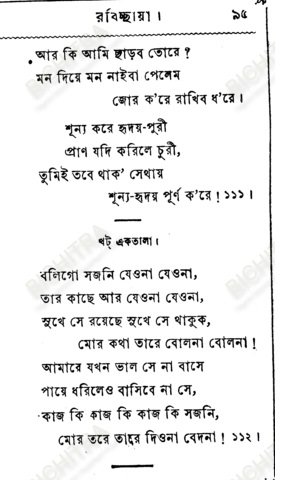 রবিচ্ছায়া। ৯৫
আর কি আমি ছাড়ব তোরে ?
মন দিয়ে মন নাইবা পেলেম
জোর ক'রে রাখিব ধ'রে।
শূন্য করে হৃদয়-পুরী
প্রাণ যদি করিলে চুরী,
তুমিই তবে থাক' সেথায়
শূন্য-হৃদয় পূর্ণ ক'রে ! ১১১।
খট্ একতালা।
বলিগো সজনি যেওনা যেওনা,
তার কাছে আর যেওনা যেওনা,
সুখে সে রয়েছে সুখে সে থাকুক,
মোর কথা তারে বোলনা বোলনা !
আমারে যখন ভাল সে না বাসে
পায়ে ধরিলেও বাসিবে না সে,
কাজ কি কাজ কি কাজ কি সজনি,
মোর তরে তারে দিওনা বেদনা ! ১১২।
BICHITRA